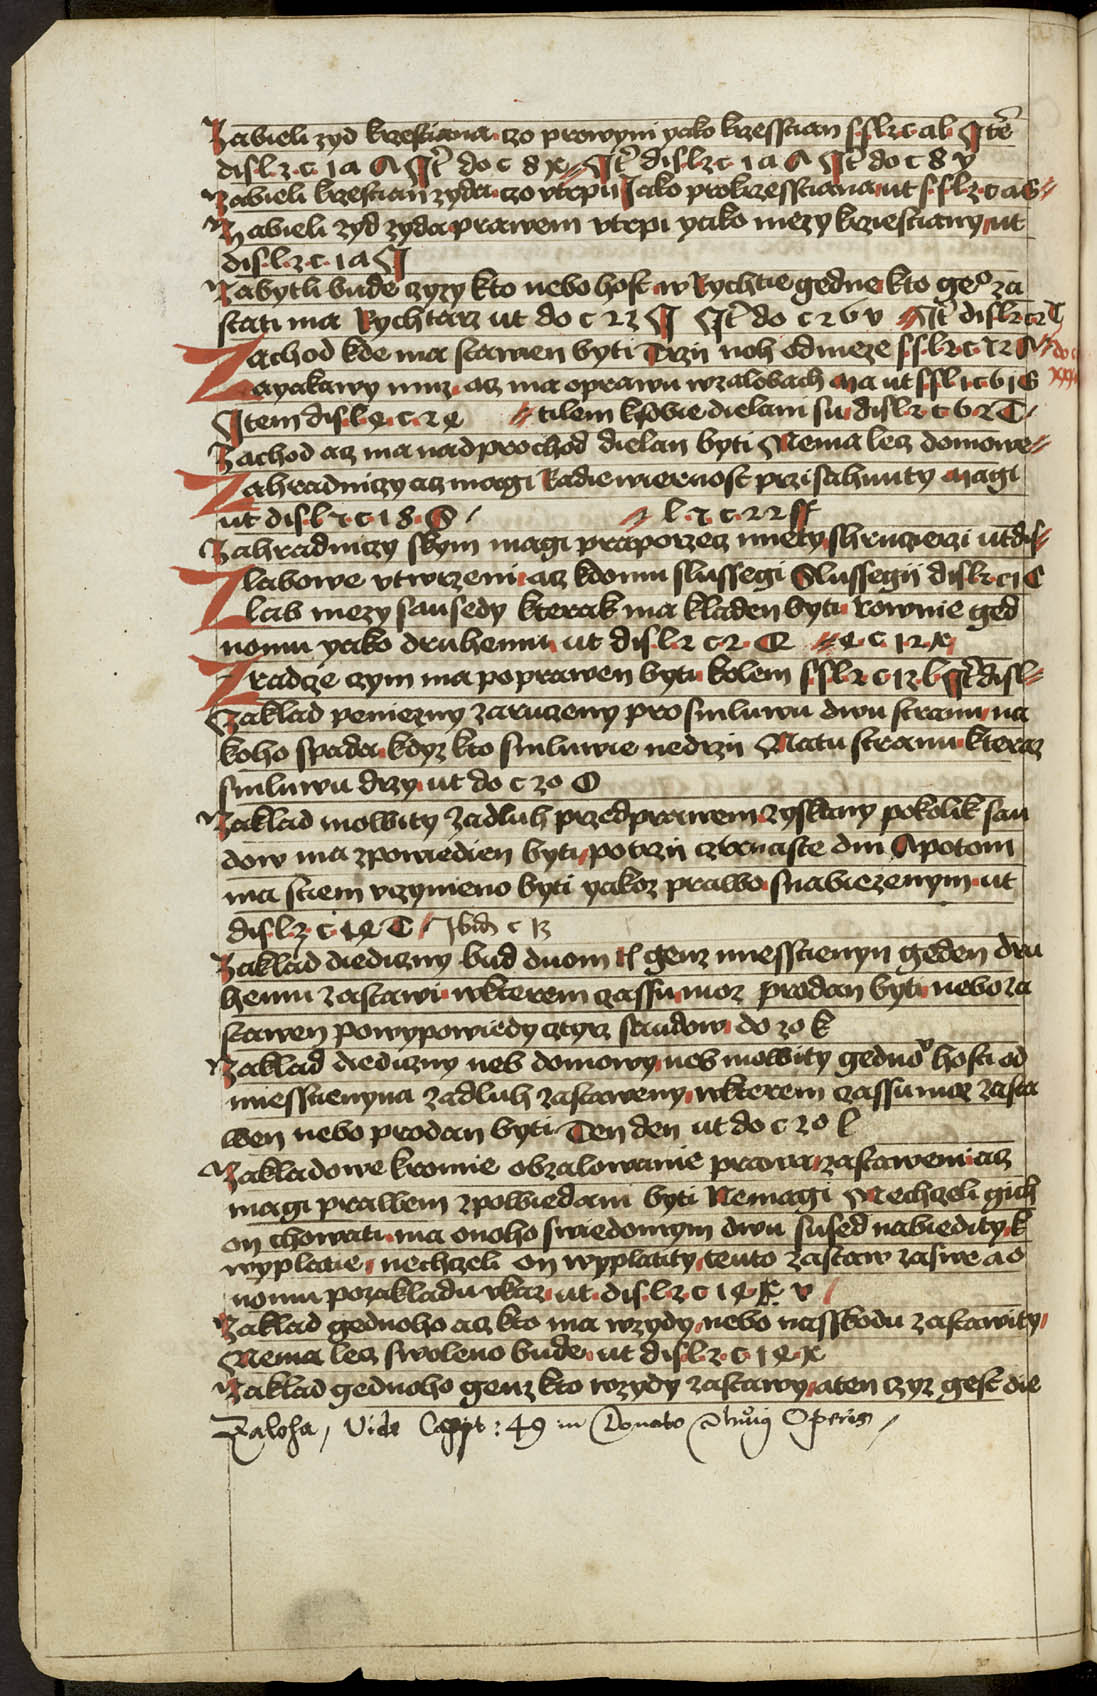 Zabieli zyd krzestiana czo prowyni yako krzesstian s.s.l.2.c. ab. Itē
dis.l.2.c. 1a A Itē do c 8 x Itē dis.l.2.c. 1 a A Itē do c 8 y
Zabieli krzestian zyda czo vtrpii Jako prokrzesstiana ut s.s.l.2.c a6
Zabieli zyd zyda prawem vtrpi yako mezy krziestiany ut
dis.l.2.c. 1a
Zabytli bude czyzy kto nebo host w Rychtie gedne kto geº za
stati ma Rychtarz ut do c 2 z Itē do c 2 6 v Itē dis.l.2.c.2 T
Zachod kde ma stawen byti Trzii noh od meze s.s.l.2.c.
Zayakawy muz az ma oprawu w zalobach ut s.s.l 1 c. 6 1 G
Item dis.l.4.c.2 4 tilem dielani su dis.l.2 c 6 2 T
Zachod az ma nad prochod dielan byti Nema lez domowe
Zahradniczy az magi Radie wiernost przisahnuty magi
ut dis.l 7 c. 1 8. S l. 7. c. 2 2 ff
Zahradniczy skym magi praporzez mnety ut dis
Zlabowe vtwrzeni az kdomu slussegi Slussegii dis.l.2.c 1 C
Zlab mezy sausedy kterak ma kladen byti rownie ged
nomu yako druhemu ut dis.l.2 c 2. Q 4 c 1 2 x
Zradcze czym ma poprawen byti kolem s.s.l.2 c 1 2 b Itē dis.l
Zaklad peniezny zaruczeny pro smluwu dwu stranu na
koho spada kdyz kto smluwie nedrzii Na tu stranu kteraz
smluwu drzy ut do c 2 0 O
Zaklad mowity za dluh przed prawem zyskany pokolik sau
dow ma zpowiedien byti po trzii cztrnaste dni A potom
ma stiem vczynieno byti yakoz prawo snabiezenym ut
dis.l.2 c 1 4 T Ibid c 13
Zaklad diediczny bud duom tl genz miesstienyn geden dru
hemu zastawi w kterem czassu moz prodan byti nebo za
stawen po wypowiedy cztyrz saudow do 20 k
Zaklad diediczny neb domowy neb mowity gednoº hosti od
miesstienyna za dluh zastaweny w kterem czassu moz zasta
wen nebo prodan byti Ten den ut do c 2 0 l
Zakladowe kromie obzalowanie prawa zastaweni az
magi prawem zpowiedani byti Nemagi Nechczeli gich
on chowati ma onoho swiedomym dwu sused nabiedity k
wyplatie nechczeli on wyplatity tento zastaw zaswe a o
nomu pozakladu vkaz ut dis.l.2 c 1 4 v
Zaklad gednoho az kto ma w zydy nebo nasskodu zastawity
Nema lez swoleno bude ut dis.l.2.c. 1 4. x
Zaklad gednoho genz kto wzydy zastawy a ten czyz gest die
Zaloha, Vide Capt: 49 in Donato Operis